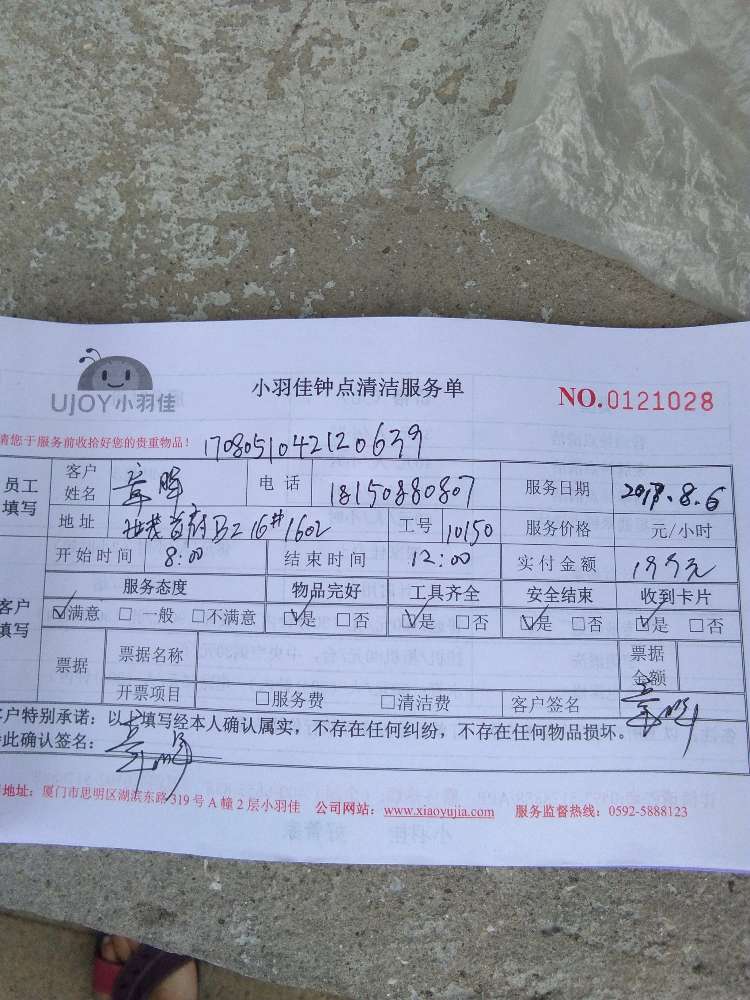 UJOY小羽佳
小羽佳钟点清洁服务单
NO.0121028
请您于服务前收拾好您的贵重物品！ 1708051042120639
员工填写 客户姓名 章晖 电话 18150880807 服务日期 2017.8.6
地址 世茂首府B2 16#1602 工号 10150 服务价格 元/小时
开始时间 8:00 结束时间 12:00 实付金额 199元
客户填写 服务态度 物品完好 工具齐全 安全结束 收到卡片
☑满意 □一般 □不满意 ☑是 □否 ☑是 □否 ☑是 □否 ☑是 □否
票据 票据名称 票据金额
开票项目 □服务费 □清洁费 客户签名 章晖
客户特别承诺：以上填写经本人确认属实，不存在任何纠纷，不存在任何物品损坏。
此确认签名： 章晖
地址：厦门市思明区湖滨东路319号A幢2层小羽佳 公司网站：www.xiaoyujia.com 服务监督热线：0592-5888123